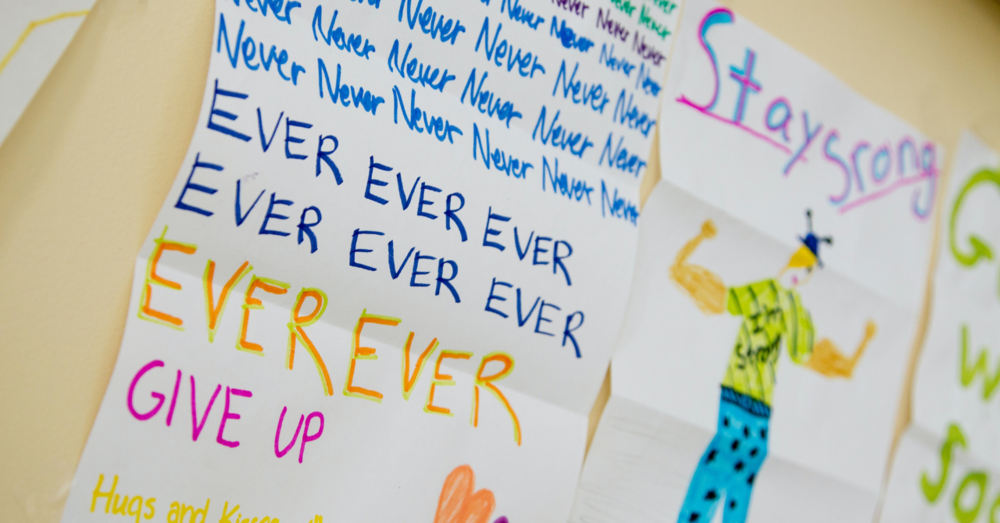 Never
Never Never
Never Never Never
Never Never Never Never
Never Never Never Never
Never Never Never Never Never Never
Never Never Never Never Never Never
EVER EVER EVER
EVER EVER EVER
EVER EVER
GIVE UP
Hugs and
Stay srong
I'm
strong
G
W